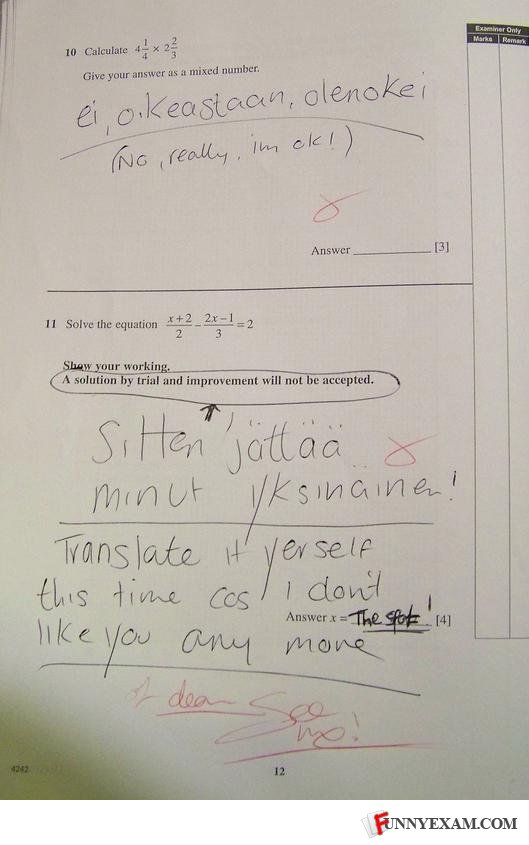 Examiner Only
Marks Remark
10 Calculate 4 1/4 × 2 2/3
Give your answer as a mixed number.
ei, oikeastaan, olenokei
(No, really, im ok!)
Answer [3]
11 Solve the equation (x+2)/2 − (2x−1)/3 = 2
Show your working.
A solution by trial and improvement will not be accepted.
Sitten jättää
minut yksinäinen!
Translate it yerself
this time cos I don't
Answer x = The spot! [4]
like you any more
oh dear See
me!
4242
12
FUNNYEXAM.COM